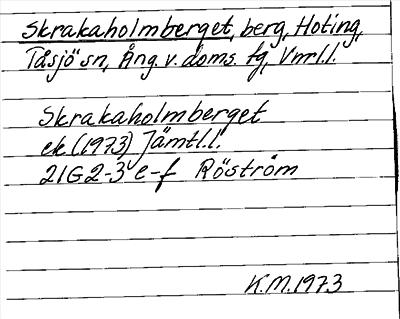 Skrakaholmberget, berg, Hoting,
Tåsjö sn, Ång. v. doms. fg, Vnrl.l.
Skrakaholmberget
ek. (1973) Jämtl.l.
21G2-3 e-f Röström
K.M.1973